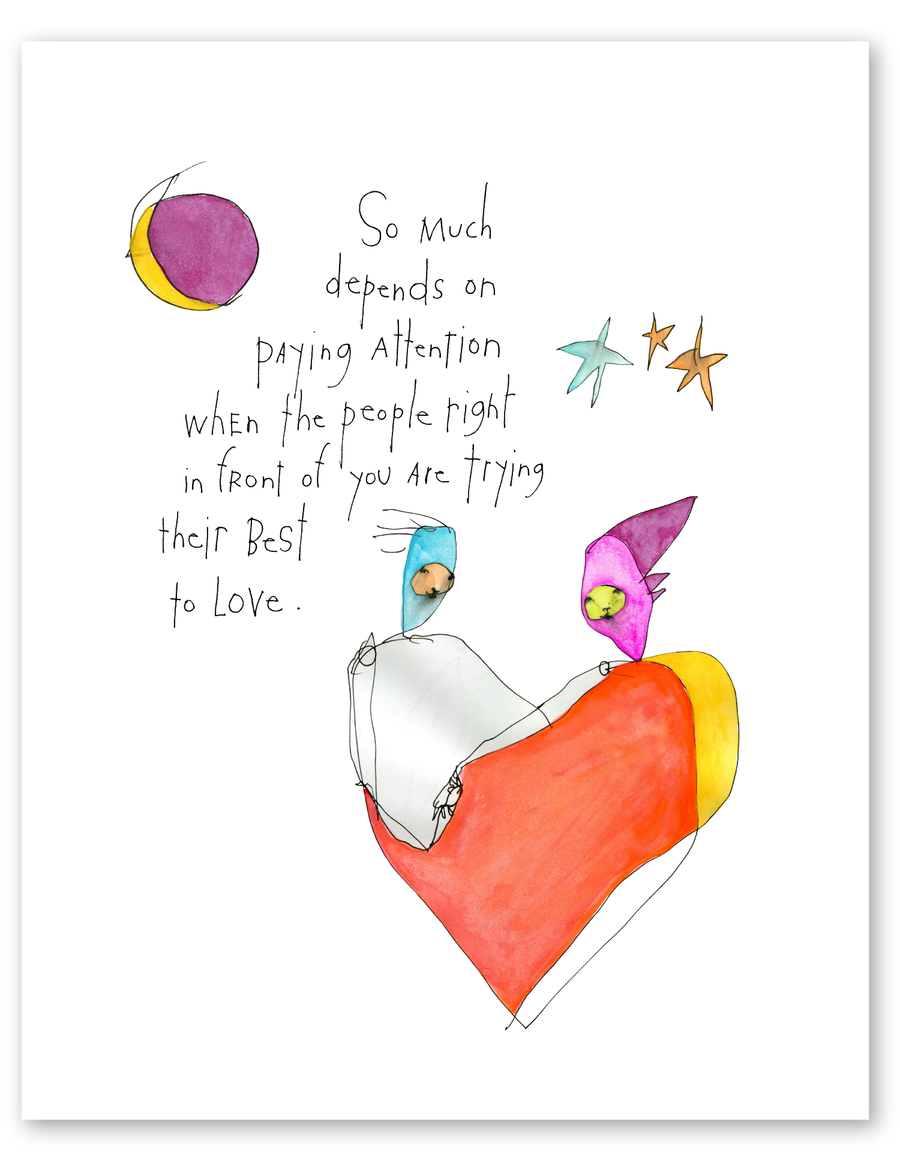 So Much
depends on
pAying Attention
whEn the people right
in fRont of you Are trying
their BesT
to LoVe.